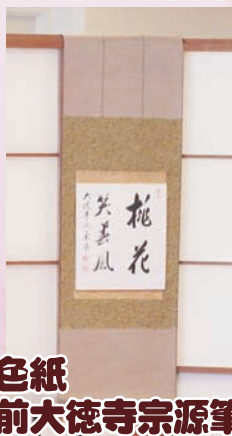 桃花
笑春風
大徳寺
色紙
前大徳寺宗源筆